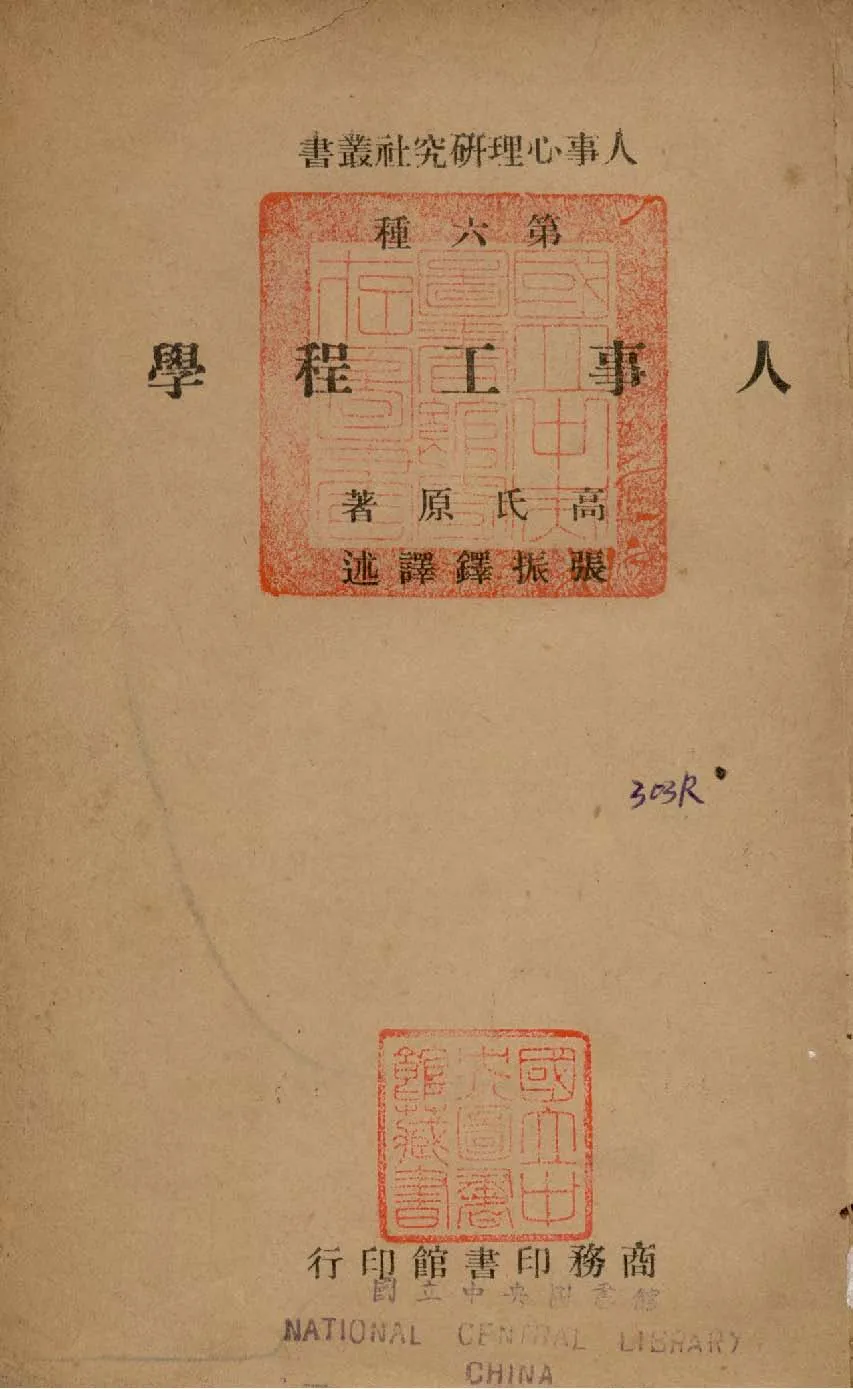 人事心理研究社叢書
第六種
人事工程學
高氏原著
張振鐸譯述
303R
國立中央圖書館藏書
商務印書館印行
國立中央圖書館
NATIONAL CENTRAL LIBRARY
CHINA